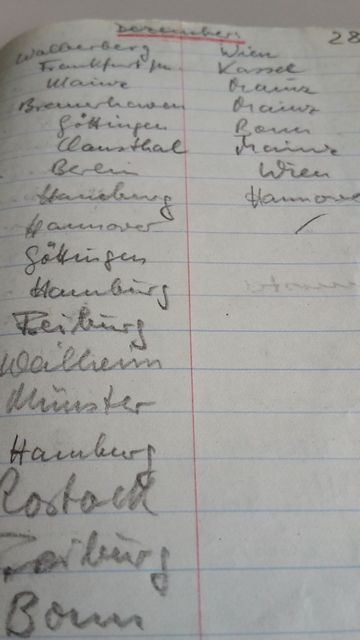 Dezember: 28
Walberberg Wien
Frankfurt/M. Kassel
Mainz Mainz
Bremerhaven Mainz
Göttingen Bonn
Clausthal Mainz
Berlin Wien
Hamburg Hannover
Hannover /
Göttingen
Hamburg
Freiburg
Weilheim
Münster
Hamburg
Rostock
Freiburg
Bonn